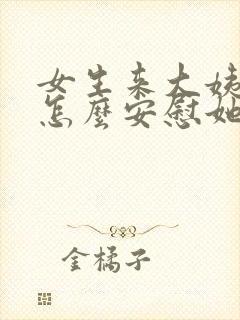 女生来大姨
怎麼安慰她
金橘子